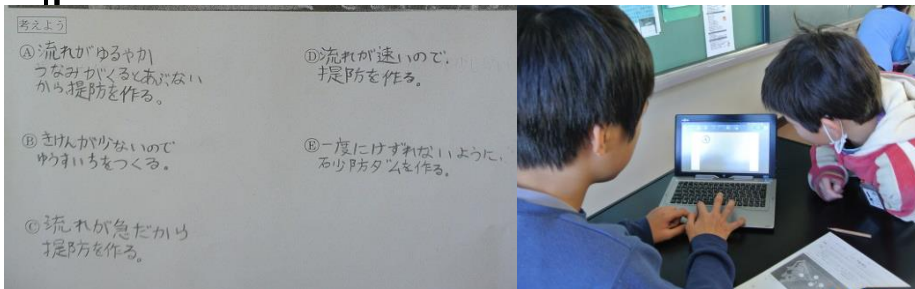 考えよう
Ⓐ流れがゆるやか
つなみがくるとあぶない
から堤防を作る。
Ⓑきけんが少ないので
ゆうすいちをつくる。
Ⓒ流れが急だから
堤防を作る。
Ⓓ流れが速いので、
堤防を作る。
Ⓔ一度にけずれないように、
砂防ダムを作る。